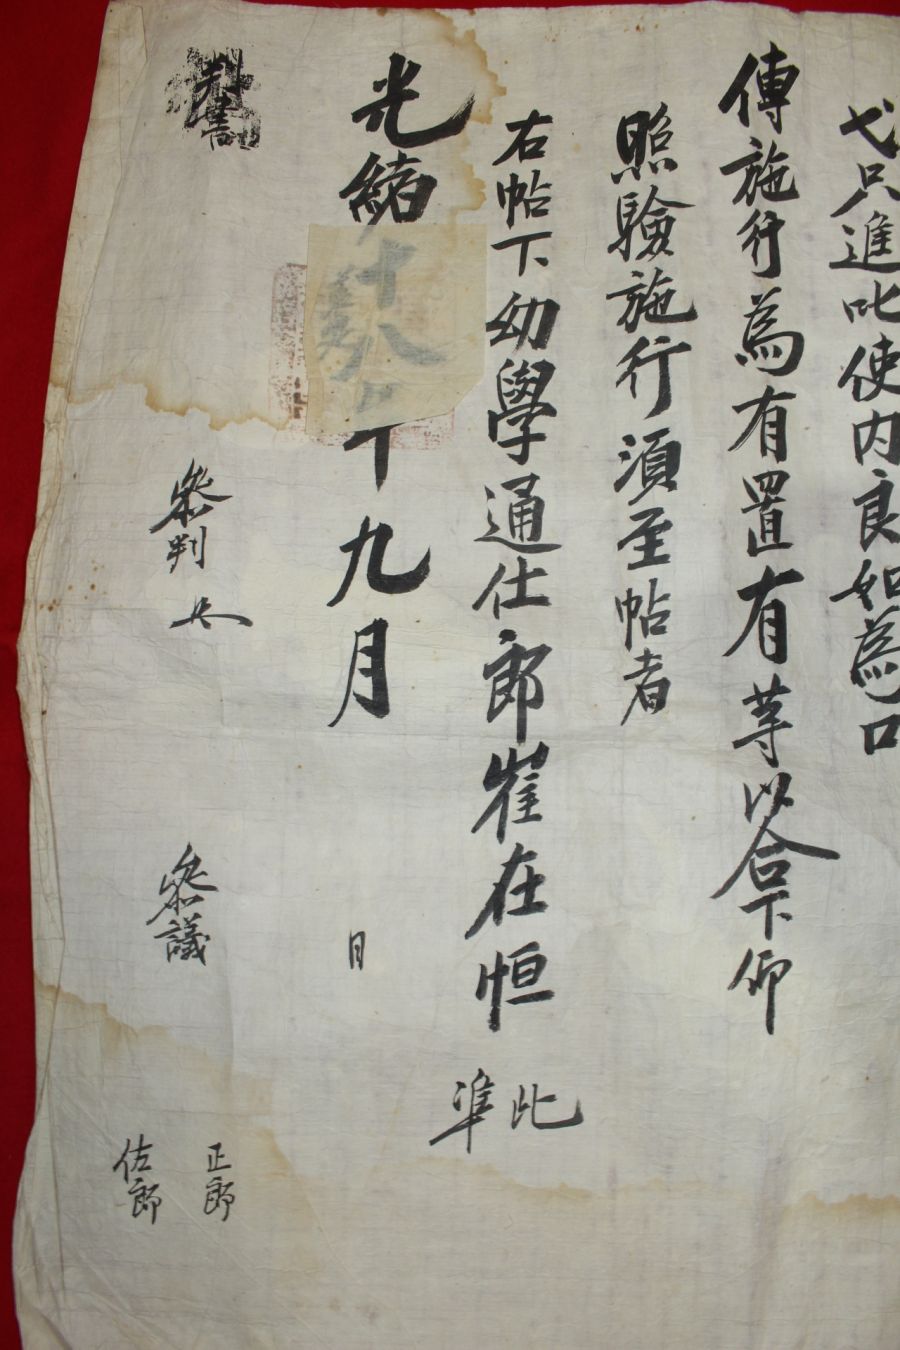 弋只進叱使內良如爲口
傳施行爲有置有等以合下仰
照驗施行須至帖者
右帖下幼學通仕郞崔在恒
此
準
光緖十八年九月 日
判書
參判
參議
正郎
佐郎